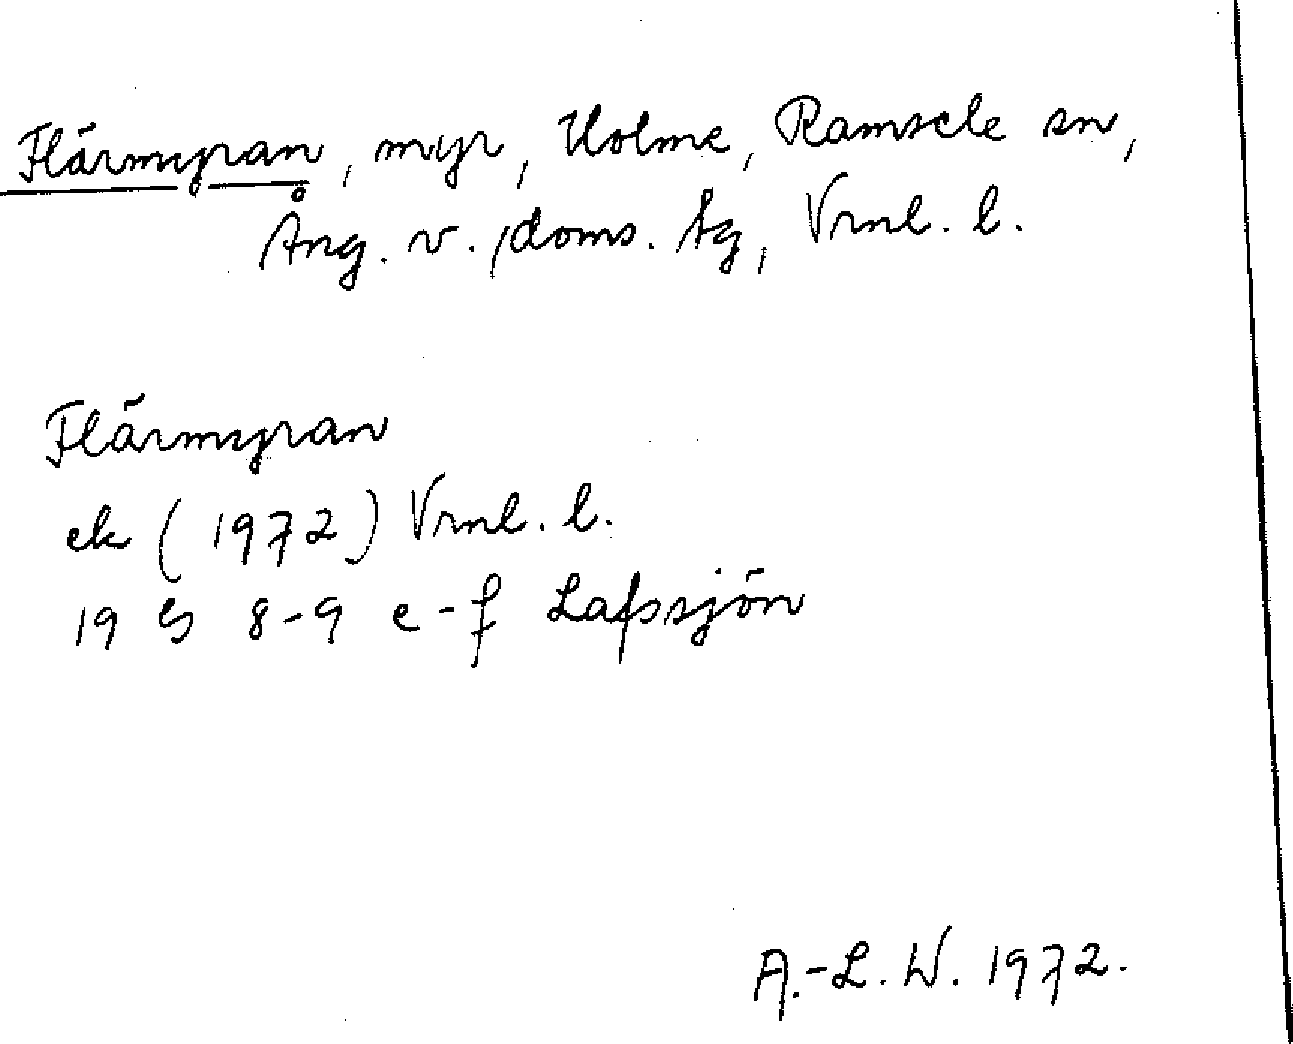 Flärmyran, myr, Holme, Ramsele sn,
Ång. v. doms. tg, Vrnl. l.
Flärmyran
ek (1972) Vrnl. l.
19 G 8-9 e-f Lafssjön
A.-L. W. 1972.